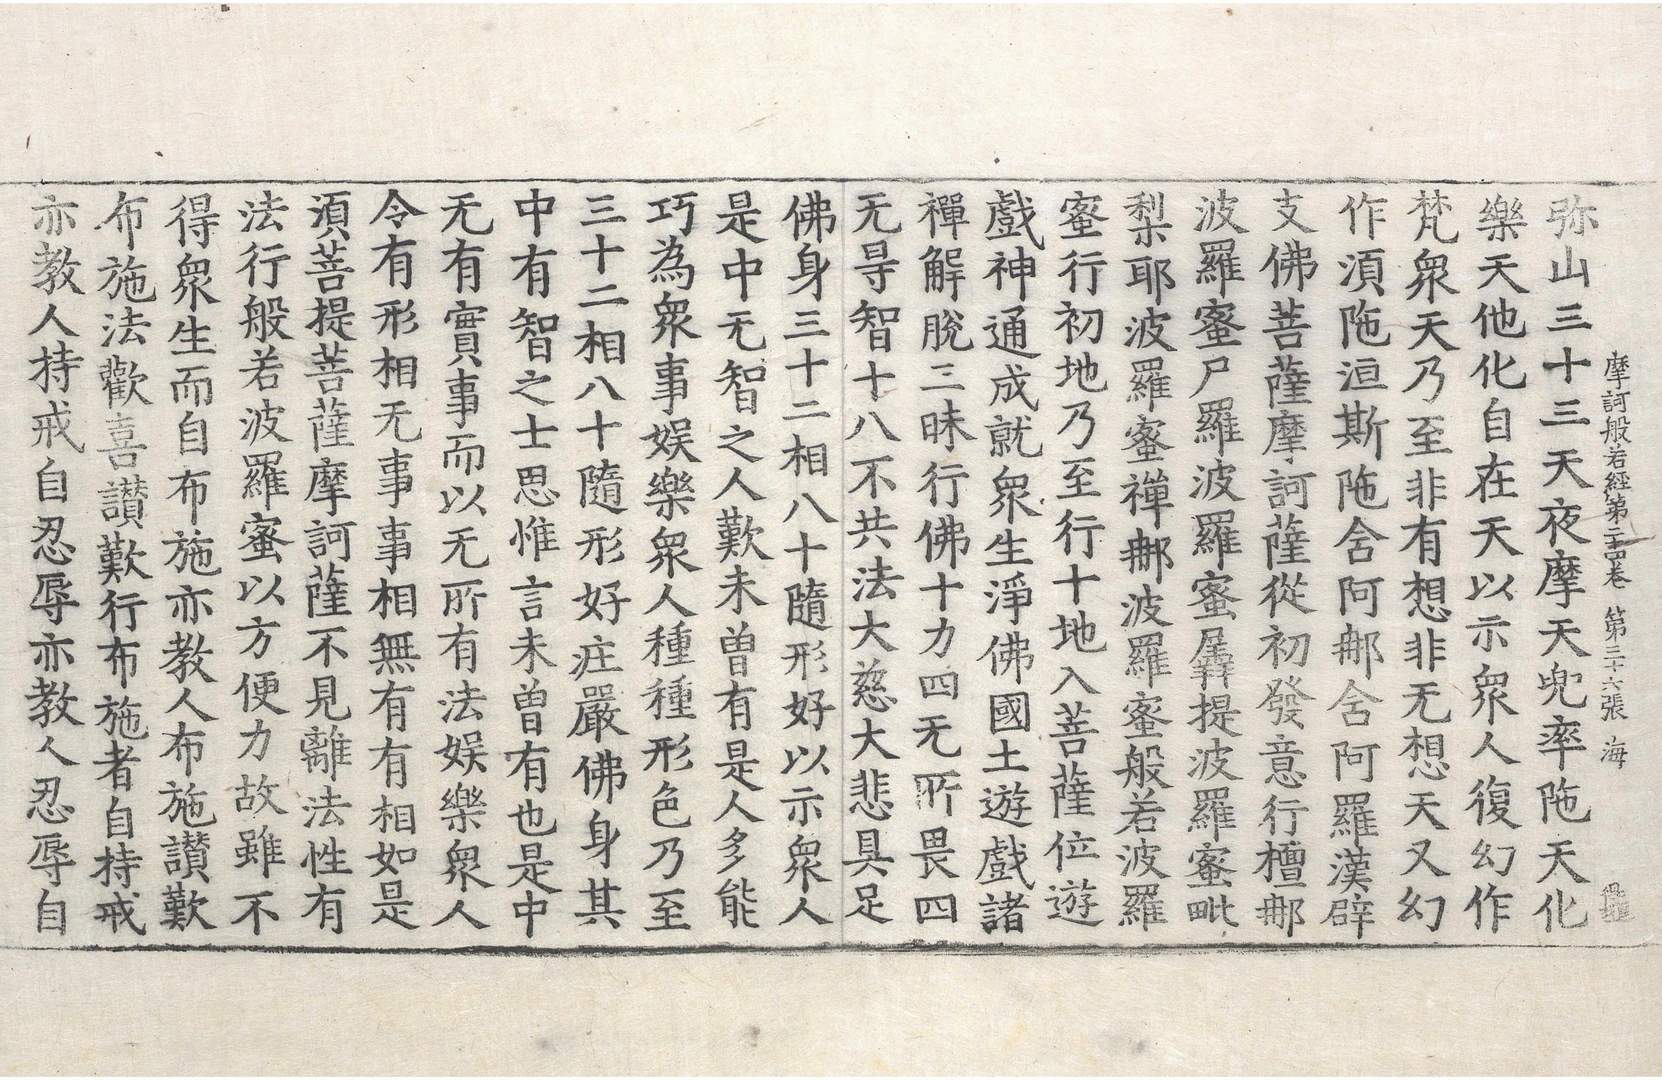 摩訶般若經第二十四卷 第三十六張 海
弥山三十三天夜摩天兜率陁天化
樂天他化自在天以示衆人復幻作
梵衆天乃至非有想非无想天又幻
作湏陁洹斯陁含阿那含阿羅漢辟
支佛菩薩摩訶薩從初發意行檀那
波羅蜜尸羅波羅蜜羼提波羅蜜毗
梨耶波羅蜜禪那波羅蜜般若波羅
蜜行初地乃至行十地入菩薩位遊
戲神通成就衆生淨佛國土遊戲諸
禪解脫三昧行佛十力四无所畏四
无㝵智十八不共法大慈大悲具足
佛身三十二相八十隨形好以示衆人
是中无智之人歎未曽有是人多能
巧為衆事娯樂衆人種種形色乃至
三十二相八十隨形好莊嚴佛身其
中有智之士思惟言未曽有也是中
无有實事而以无所有法娯樂衆人
令有形相无事事相無有有相如是
湏菩提菩薩摩訶薩不見離法性有
法行般若波羅蜜以方便力故雖不
得衆生而自布施亦教人布施讃歎
布施法歡喜讃歎行布施者自持戒
亦教人持戒自忍辱亦教人忍辱自